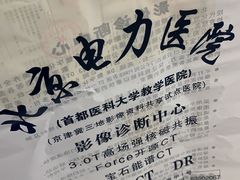 北京电力医院
（首都医科大学教学医院）
（京津冀三地影像资料共享试点医院）
影像诊断中心
3.0T高场强核磁共振
Force开源CT
宝石能谱CT
CT DR